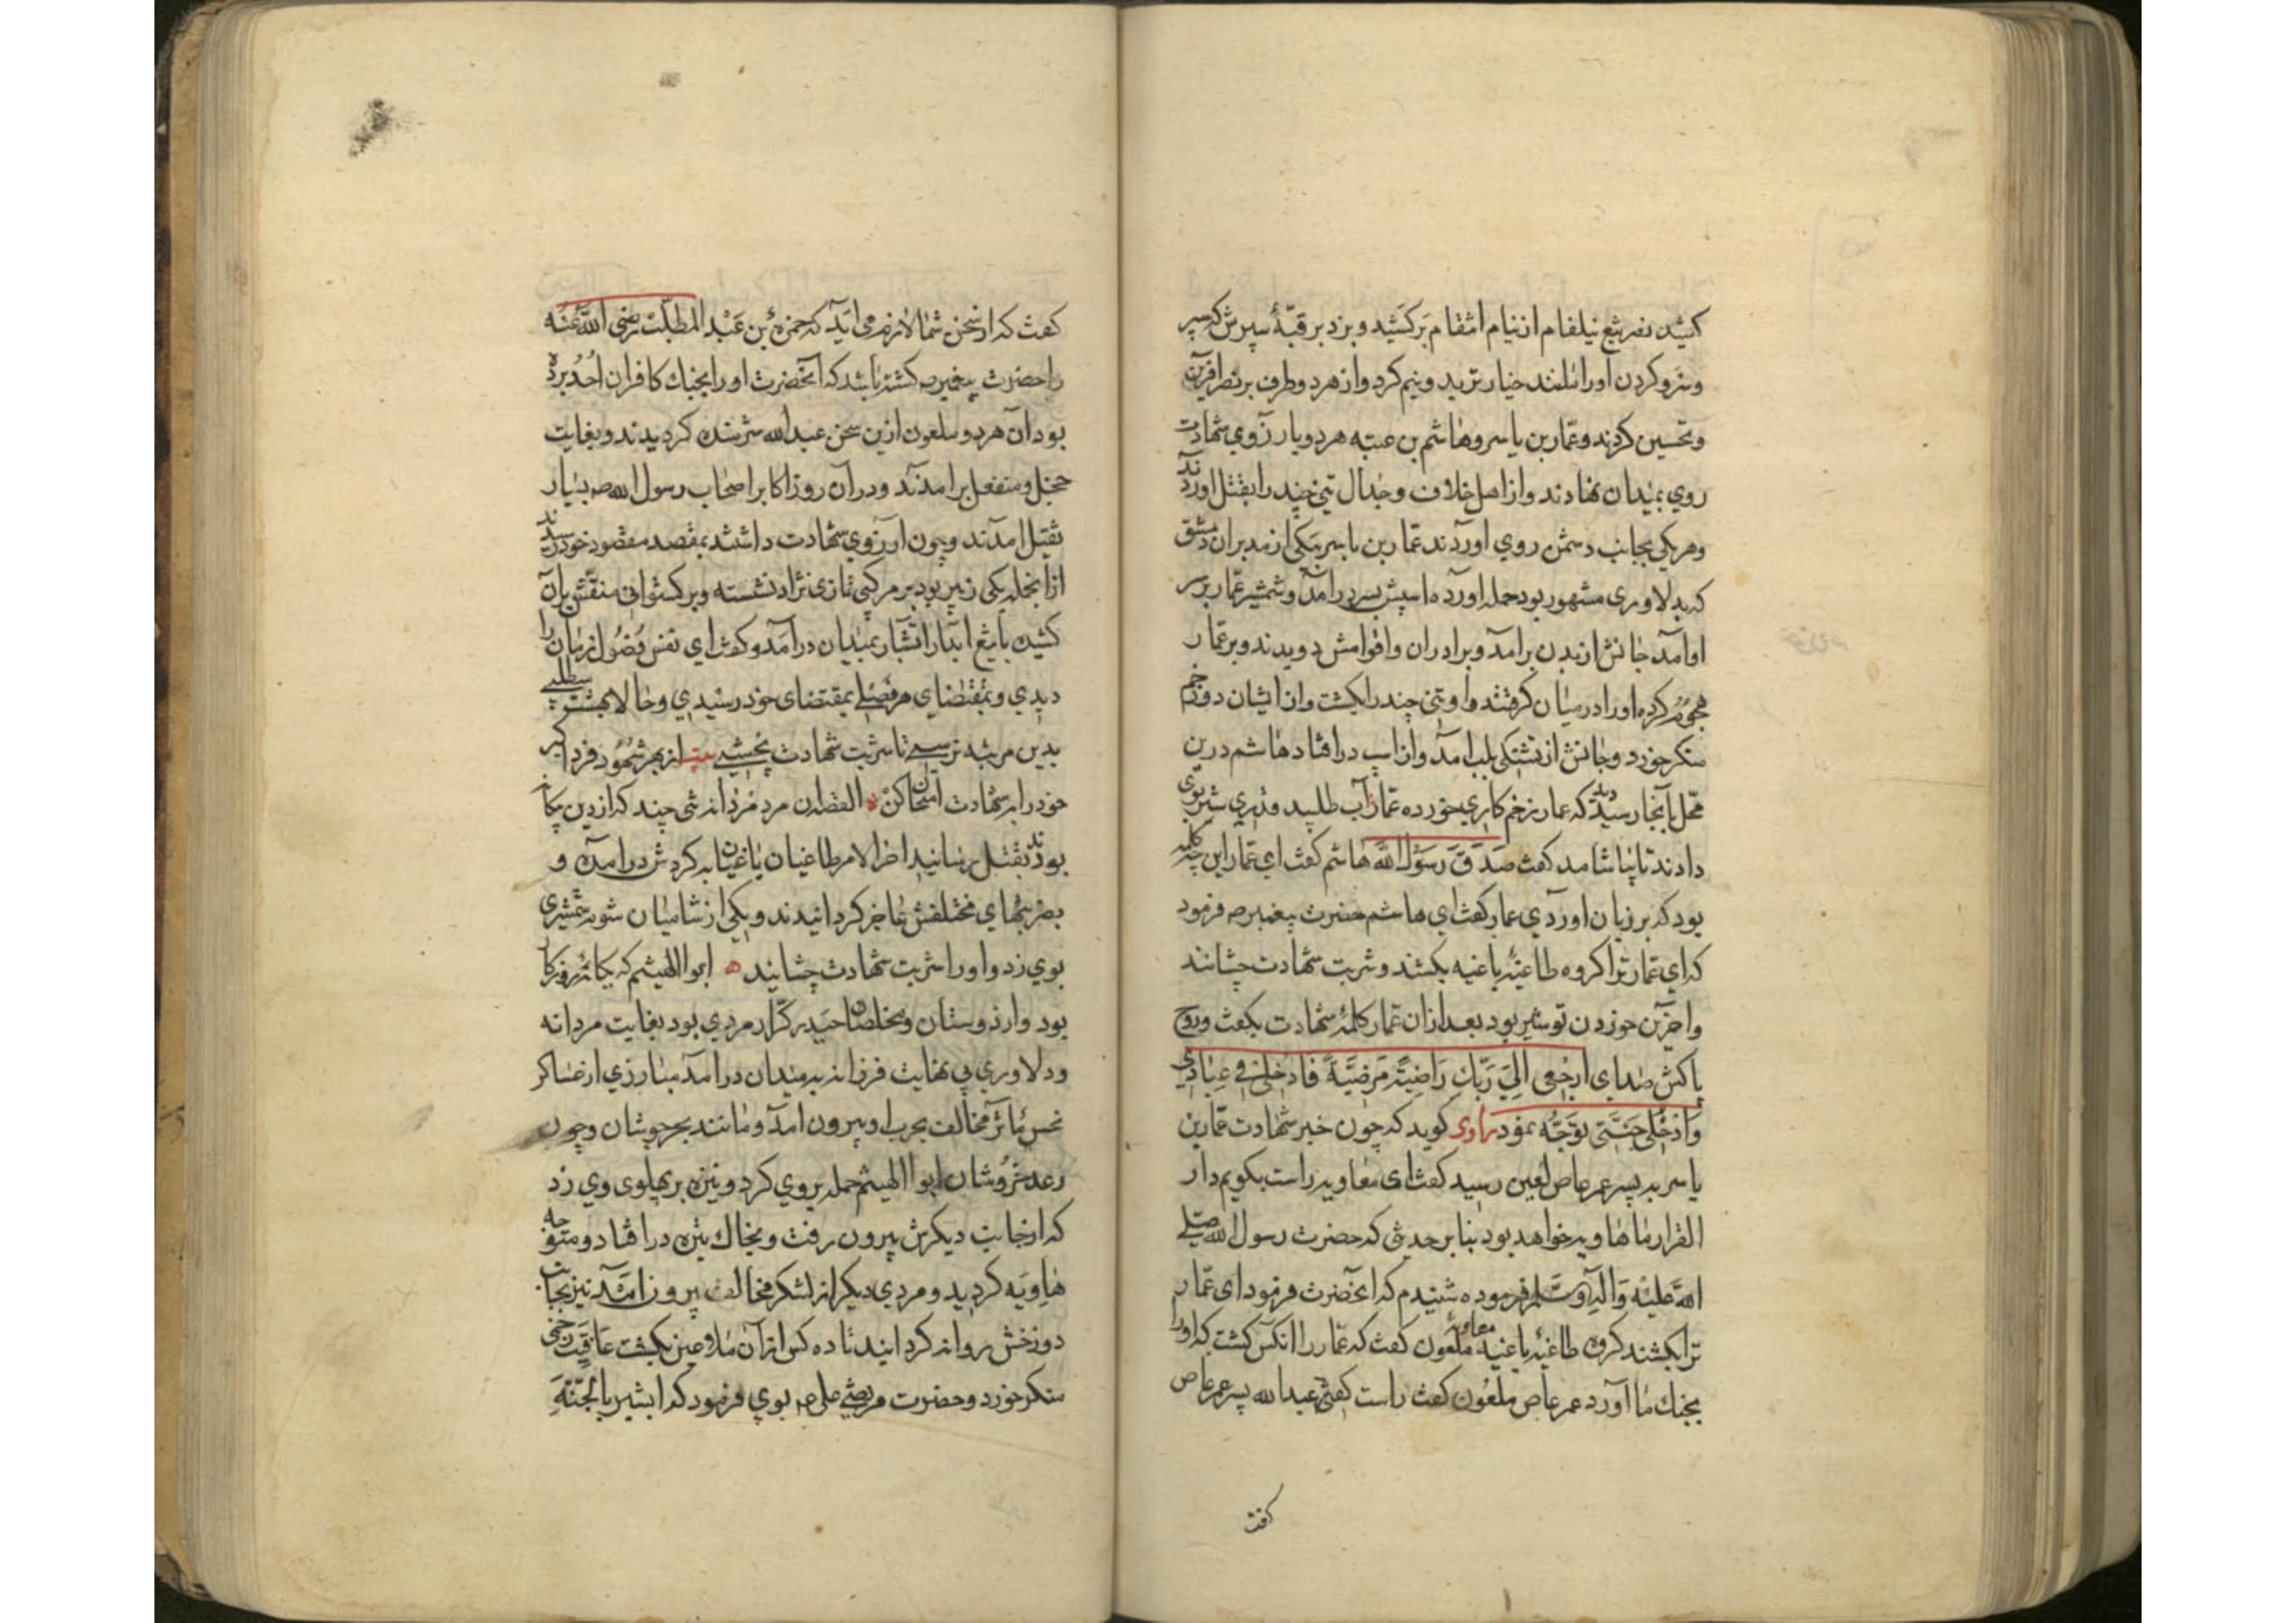 کشید نصر تیغ نیلفام از نیام انتقام برکشید و بزد بر قبّهٔ سپرش که سپر
و سر و کردن او را مانند خیار تر بدو نیم کرد و از هر دو طرف بر نصر آفرین
و تحسین کردند و عمّار بن یاسر و هاشم بن عتبه هر دو بارزوی شهادت
روی بمیدان نهادند و از اهل خلاف و جدال تنی چند را بقتل اوردند
و هر یکی بجانب دشمن روی اوردند عمّار بن یاسر بیکی از مدبران دمشق
که بدلاوری مشهور بود حمله اورده اسپش بسر درامد و شمشیر عمّار بر سر
او آمد جانش از بدن برامد و برادران و اقوامش دویدند و بر عمّار
هجوم کرده او را در میان کرفتند و او تنی چند را بکشت و از ایشان دو زخم
منکر خورد و جانش از تشنکی بلب امد و از اسپ در افتاد هاشم درین
محل بآنجا رسید دید که عمار زخم کاری خورده عمّار آب طلبید قدری شیر بوی
دادند تا بیاشامد کفت صَدَقَ رَسُولُ اللَّه هاشم کفت ای عمّار این چه کلمه
بود که بر زبان اوردی عمار کفت ای هاشم حضرت پیغمبر صه فرمود
که ای عمّار ترا کروه طاغیهٔ باغیه بکشند و شربت شهادت چشانند
و اخرین خوردن تو شیر بود بعد ازان عمّار کلمهٔ شهادت بکفت و روح
پاکش صدای ارْجِعِی اِلیٰ رَبِّكِ رَاضِیَةً مَرضِیَّةً فَادْخُلِی فی عِبَادِی
وَادْخُلِی جَنَّتِی توَجّه نمود راوی کوید که چون خبر شهادت عمّار بن
یاسر به پسر عمر عاص لعین رسید کفت ای معاویه راست بکویم دار
القرار ما هاویه خواهد بود بنا بر حدیثی که حضرت رسول الله صلی
اللّه علیْه وَآلِه وَسَلم فرموده شنیدم که آنحضرت فرمود ای عمّار
ترا بکشند کروه طاغیهٔ باغیه معاویه ملعون کفت که عمّار را انکس کشت که او را
بجنك ما آورد عمر عاص ملعُون کفت راست کفتی عبدالله پسر عمر عاص
کفت
کفت که از سخن شما لازم می اید که حمزهٔ بن عَبْد المطلّب رضی اللّه عنه
را حضرت پیغمبر صه کشته باشد که آنحضرت او را بجنك کافران اُحُد برده
بود آن هر دو ملعون ازین سخن عبدالله شرمنده کردیدند و بغایت
خجل و منفعل برامدند و در آن روز اکابر اصحاب رسول الله صه بسیار
بقتل امدند و چون آرزوی شهادت داشتند بمقصد مقصود خود رسیدند
از انجمله یکی زبیر بود بر مرکبی تازی نژاد نشسته و برکستوانی منقّش بران
کشیده با تیغ ابدار اتشبار بمیدان درآمد و کفت ای نفس فضُول زمان را
دیدی و بمقتضای مرتضی بمقتضای خود رسیدی و حالا بهشت می طلبی
بدین مرتبه نرسی تا شربت شهادت نچشی بیت از بهر شهُود فرد اکبر
خود را به شهادت امتحان کن ه القصه ان مرد مردانه تنی چند که از دین بیکانه
بودند بقتل رسانید اخر الامر طاغیان یاغیان به کردش درامده و
بضربهای مختلفش عاجز کردانیدند و یکی از شامیان شوم شمشیری
بوی زد و او را شربت شهادت چشانید ه ابو الهیثم که یکانهٔ روزکار
بود و از دوستان و مخلصان حیدر کرّار مردی بود بغایت مردانه
و دلاوری بی نهایت فرزانه به میدان درامد مبارزی از عساکر
نحس مآثر مخالف بحرب او بیرون امد و مانند بحر جوشان و چون
رعد خروشان ابو الهیثم حمله بروی کرد و نیزه بر پهلوی وی زد
که از جانب دیکرش بیرون رفت و بخاك تیره در افتاد و متوجه
هاویَه کردید و مردی دیکر از لشکر مخالف بیرون امَد نیز بجانب
دوزخش روانه کردانید تا ده کس از آن ملاعین بکشت عاقبت زخمی
منکر خورد و حضرت مرتضی علی عم بوی فرمود که ابشیر بالجَنّةِ